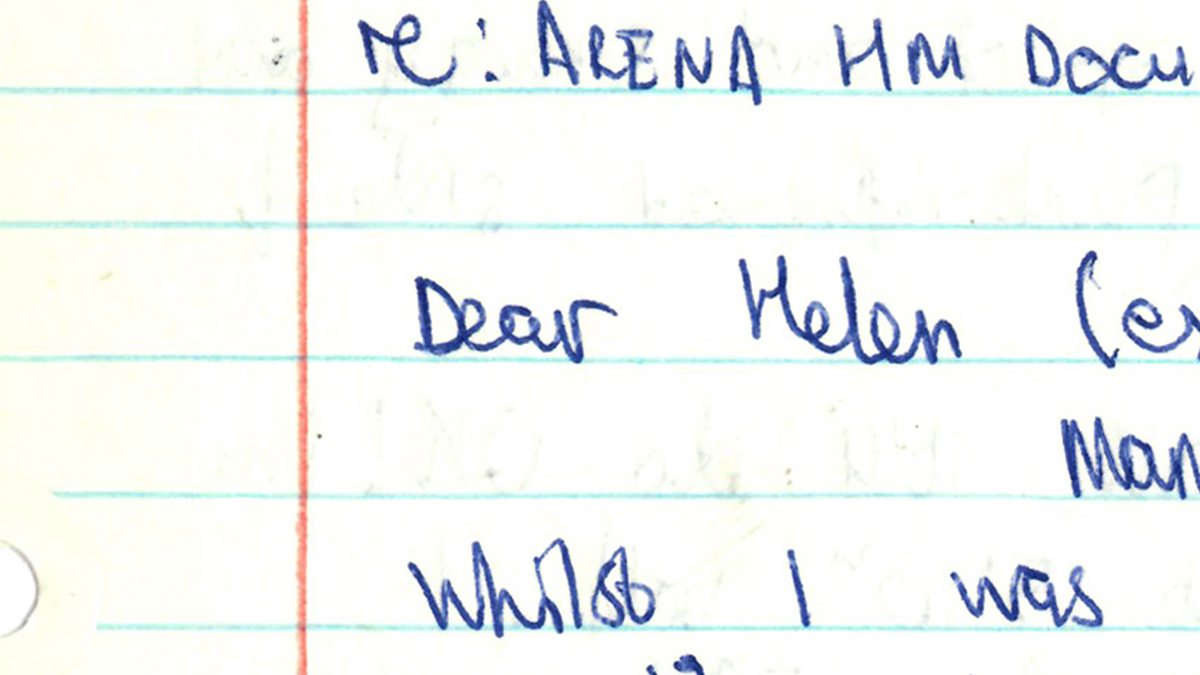 re: ARENA HM DOCU
Dear Helen (es
Man
Whilst I was